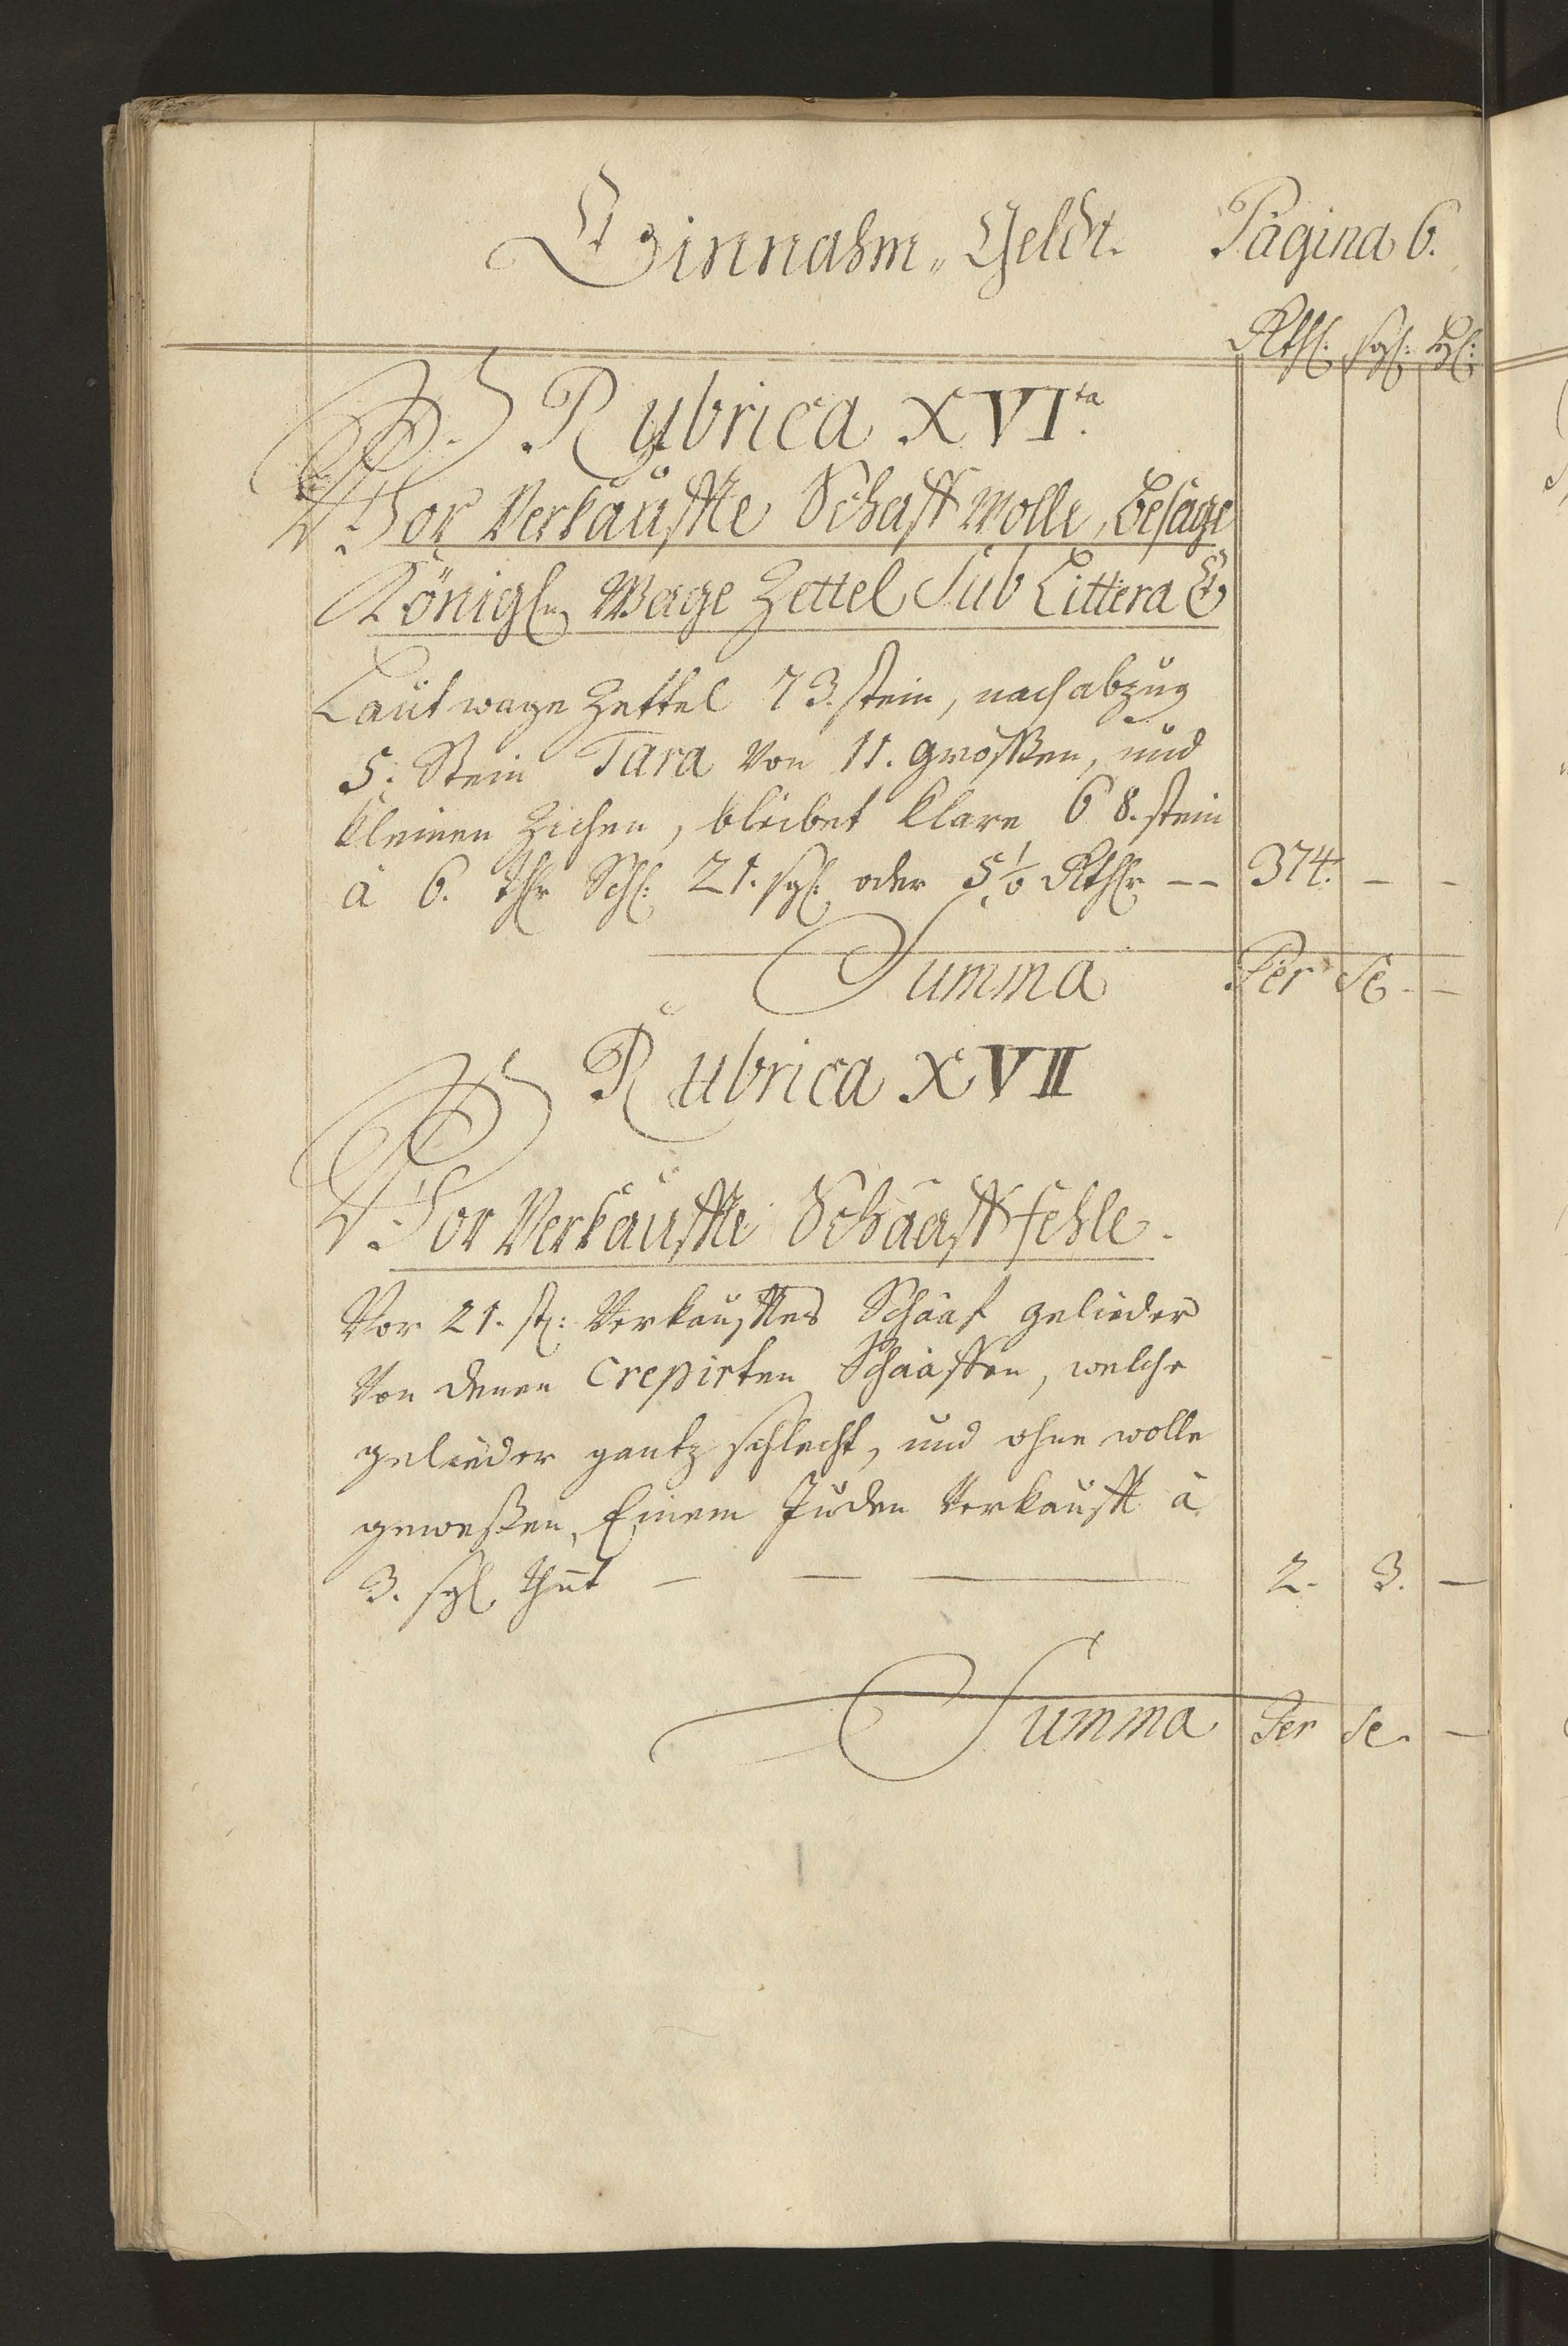 Einnahm„ Geldt. Pagina 6.
Rthl: sgl: hl:
Rubrica XVI.ta
Vor Verkauffte Schaff Wolle, besage
Königln Wage Zettel Sub Littera E
Laut wage Zettel 73. stein, nach abzug
5. Stein Tara Von 11. großen, und
kleinen Zichen, bleibet klare 68. stein
à 6. thlr Schl: 21. sgl: oder 5½ Rthlr -- 374. - -
Summa Per Se - -
Rubrica XVII
Vor Verkauffte Schaaff fehle.
Vor 21. st: Verkaufftes Schaaf gelieder
Von denen Crepirten Schaaffen, welche
gelieder gantz schlecht, und ohne wolle
geweßen, Einem Juden Verkaufft à
3. sgl thut — — — 2. 3. —
Summa Per Se. —